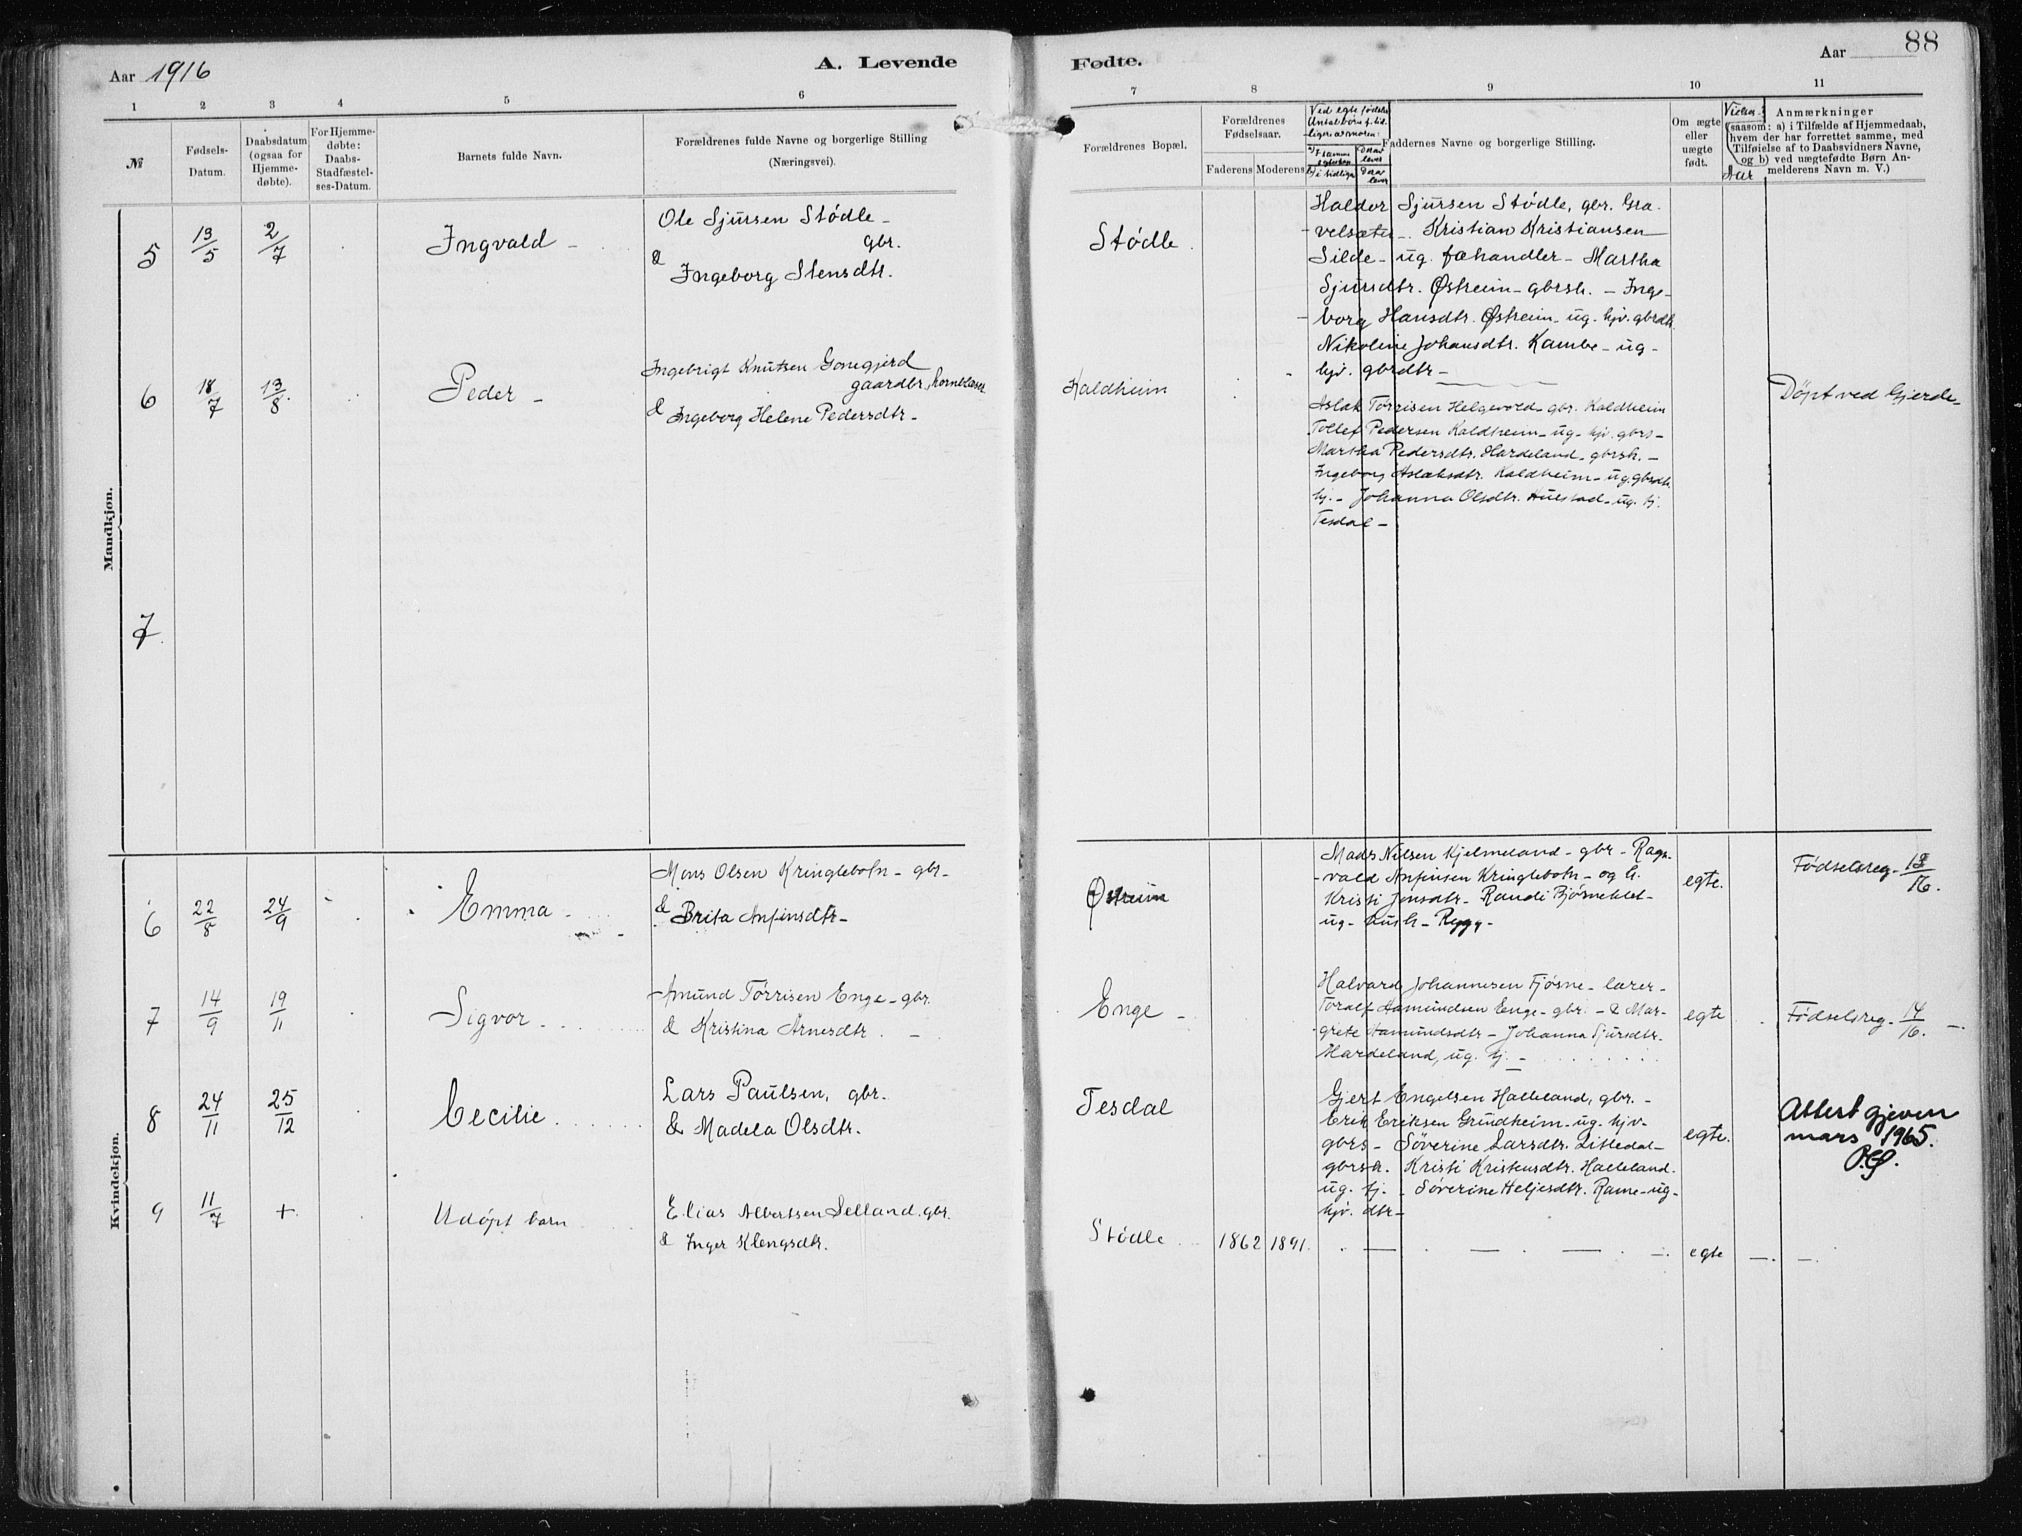 Aar 1916
A. Levende
Fødte.
Aar
88
1 2 3 4 5 6 7 8 9 10 11
№
Fødsels-
Datum.
Daabsdatum
(ogsaa for
Hjemme-
døbte).
For Hjemme-
døbte:
Daabs-
Stadfæstel-
ses-Datum.
Barnets fulde Navn.
Forældrenes fulde Navne og borgerlige Stilling
(Næringsvei).
Forældrenes Bopæl.
Forældrenes
Fødselsaar.
Faderens Moderens
Ved egte fødsler
Antal børn f. tid-
ligere av moren:
Derav
lever
i tidligere
Derav
lever
Faddernes Navne og borgerlige Stilling.
Om ægte
eller
uægte
født.
Vielses-
Aar
Anmærkninger
(saasom: a) i Tilfælde af Hjemmedaab,
hvem der har forrettet samme, med
Tilføielse af to Daabsvidners Navne,
og b) ved uægtefødte Børn An-
melderens Navn m. V.)
Mandkjøn.
5
13/5
2/7
Ingvald -
Ole Sjursen Stödle -
gbr.
& Ingeborg Stensdtr.
Stödle.
Haldor Sjursen Stödle, gbr. Gra-
velsæter - Kristian Kristiansen
Silde - ug. fæhandler - Martha
Sjursdtr. Østreim - gbrsk. - Inge-
borg Hansdtr. Østreim - ug. hjv. gbrdtr.
Nikoline Johansdtr. Kambe - ug -
hjv. gbrdtr -
6
18/7
13/8
Peder -
Ingebrigt Knutsen Gonegjerd
gaardbr, hornblæser
& Ingeborg Helene Pedersdtr -
Kaldheim
Aslak Tørrisen Helgevold - gbr. Kaldheim
Tollef Pedersen Kaldheim - ug - hjv. gbrs -
Martha Pedersdtr. Hardeland - gbrsk. -
Ingeborg Aslaksdtr. Kaldheim - ug. gbrdtr.
hj. - Johanna Olsdtr. Hulstad - ug. tj.
Tesdal -
Döpt ved Gjerde -
7
Kvindekjøn.
6
22/8
24/9
Emma -
Mons Olsen Kringlebotn - gbr -
& Brita Anfinsdtr -
Østreim
Mads Nilsen Kjelmeland - gbr - Ragn-
vald Anfinsen Kringlebotn - og k.
Kristi Jonsdtr - Randi Björneklet -
ug - hush - Rygg -
egte.
Fødselsreg - 13/16.
7
14/9
19/11
Sigvor -
Amund Tørrisen Enge - gbr.
& Kristina Arnesdtr. -
Enge -
Halvard Johannesen Fjøsne - lærer -
Toralf Aamundsen Enge - gbr. - & Mar-
grete Aamundsdtr - Johanna Sjursdtr.
Hardeland, ug. tj. -
egte
Fødselsreg - 14/16. -
8
24/11
25/12
Cecilie
Lars Paulsen, gbr.
& Madela Olsdtr.
Tesdal
Gjert Engelsen Halleland, gbr. -
Erik Eriksen Grindheim - ug. hjv -
gbrs - Söverine Larsdtr. Litledal -
gbrsk. Kristi Kristensdtr. Halleland.
ug. tj. - Söverine Heljesdtr. Rame - ug -
hjv. dtr -
egte.
Attest gjeven
mars 1965.
9
11/7
+
Udöpt barn
Elias Albertsen Selland. gbr.
& Inger Klengsdtr.
Stödle
1862 1891.
egte - . -